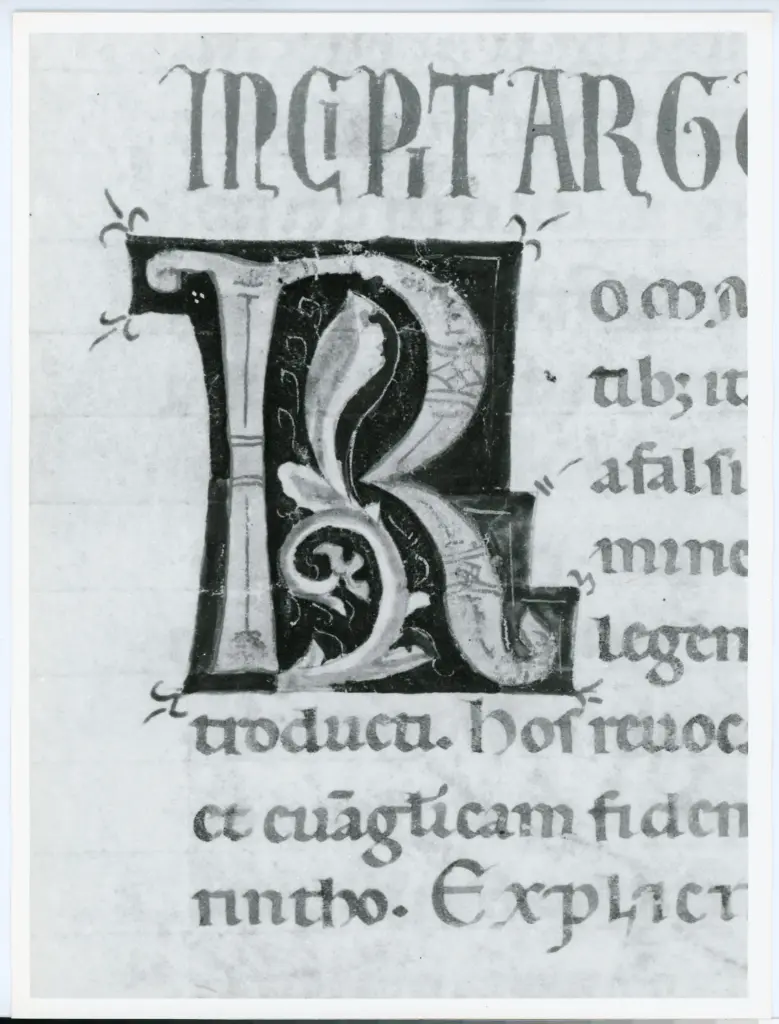 INCIPIT ARGU
ROMAN
tib; it
a falsi
mine
legem
troducti. hos reuoc
et euāgelicam fidem
rintho. Explicit